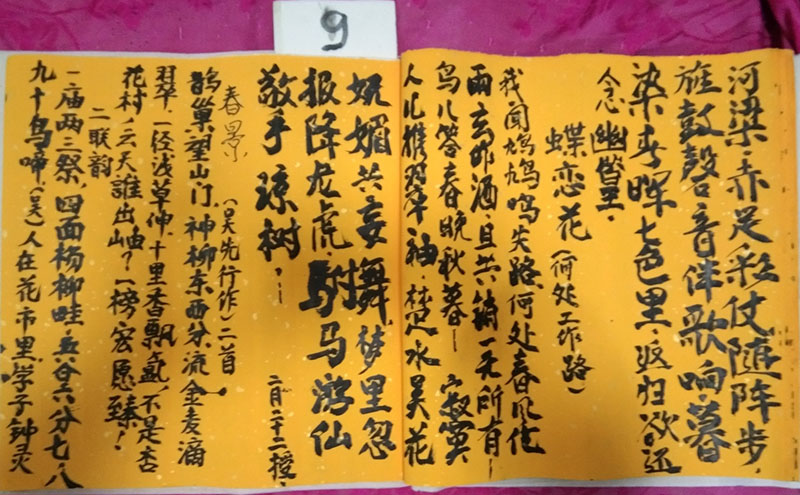 9
河梁赤足彩仗随阵步，
旌鼓磬音伴歌响，暮
染春晖七色里，返归欲还
念幽皆里，
蝶恋花（何处工作路）
我闻鸠鸠鸣失路何处春风化
雨玄作酒，且共一无所有
鸟儿答春晚秋暮 寂寞
人儿携翠袖，梦足水吴花
妩媚共妄舞，梦里忽
报降龙虎，驸马游仙
敬手琼树，
二月二十二授，
春景 （吴先行作）二首
鹊巢望山门，神柳东西分流金麦滴
翠，一径浅草伸，十里香飘氤，不是杏
花村，云天谁出岫？一榜宏愿臻！
二联韵
一庙两三祭，四面杨柳畦，五谷六分七八
九十鸟啼，（吴）人在花市里，学子钟灵